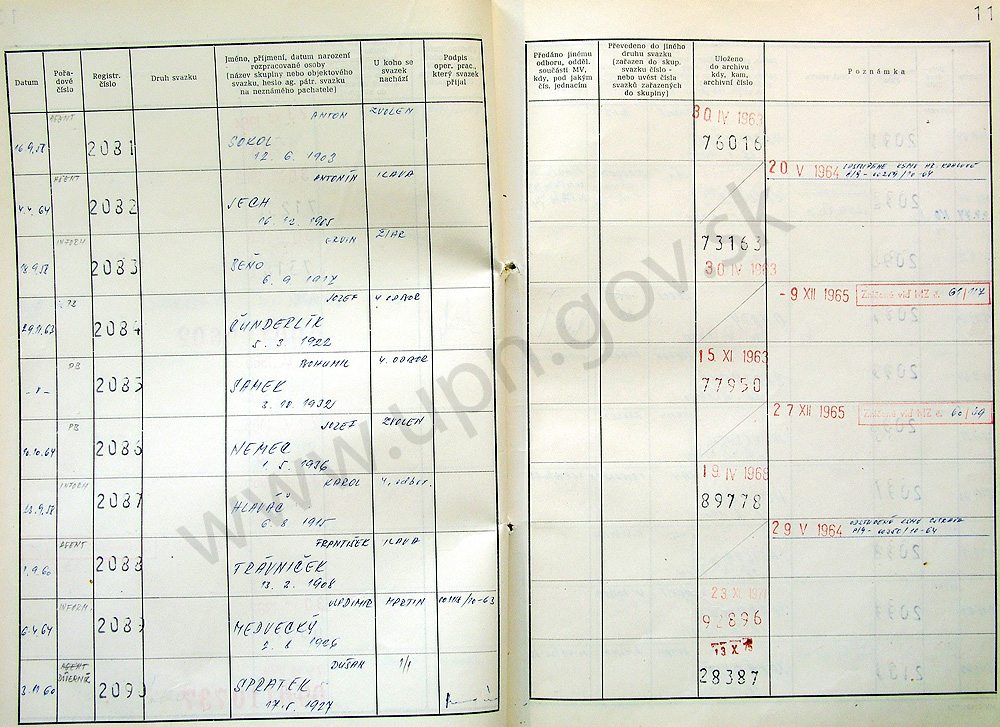 11
Datum
Pořa-
dové
číslo
Registr.
číslo
Druh svazku
Jméno, příjmení, datum narození
rozpracované osoby
(název skupiny nebo objektového
svazku, heslo ag. pátr. svazku
na neznámého pachatele)
U koho se
svazek
nachází
Podpis
oper. prac.,
který svazek
přijal
Předáno jinému
odboru, odděl.
součásti MV,
kdy, pod jakým
čís. jednacím
Převedeno do jiného
druhu svazku
(zařazen do skup.
svazku číslo -
nebo uvést čísla
svazků zařazených
do skupiny)
Uloženo
do archivu
kdy, kam,
archivní číslo
Poznámka
AGENT ANTON ZVOLEN 30 IV 1963
16.9.58 2081 SOKOL 76016
12. 6. 1903
AGENT ANTONÍN ILAVA 20 V 1964
4.4.64 2082 JECH
1905
INFORM ERVIN ŽIAR 73163
18.9.58 2083 SEŇO 30 IV 1963
6. 9. 1917
PS JOZEF 4. ODBOR - 9 XII 1965 Zničené viď NZ č. 61/117
29.11.63 2084 ČUNDERLÍK
5. 3. 1922
PS BOHUMIL 4. ODBOR 15 XI 1963
-"- 2085 SAMEK 77950
3. 10. 1932
PS JOZEF ZVOLEN 27 XII 1965 Zničené viď NZ č. 60/39
10.10.64 2086 NEMEC
1. 5. 1936
INFORM KAROL 4. odbor. 19 IV 1968
2087 HLAVÁČ 89778
6. 8. 1915
AGENT FRANTIŠEK ILAVA 29 V 1964
1.9.60 2088 TRÁVNIČEK
13. 2. 1908
INFORM. VLADIMIR MARTIN 23 XI
6.4.64 2089 MEDVECKÝ
2. 8. 1926
AGENT DUŠAN 13 X
3.11.60 2090 SPRATEK 28387
17. 5. 1927
www.upn.gov.sk